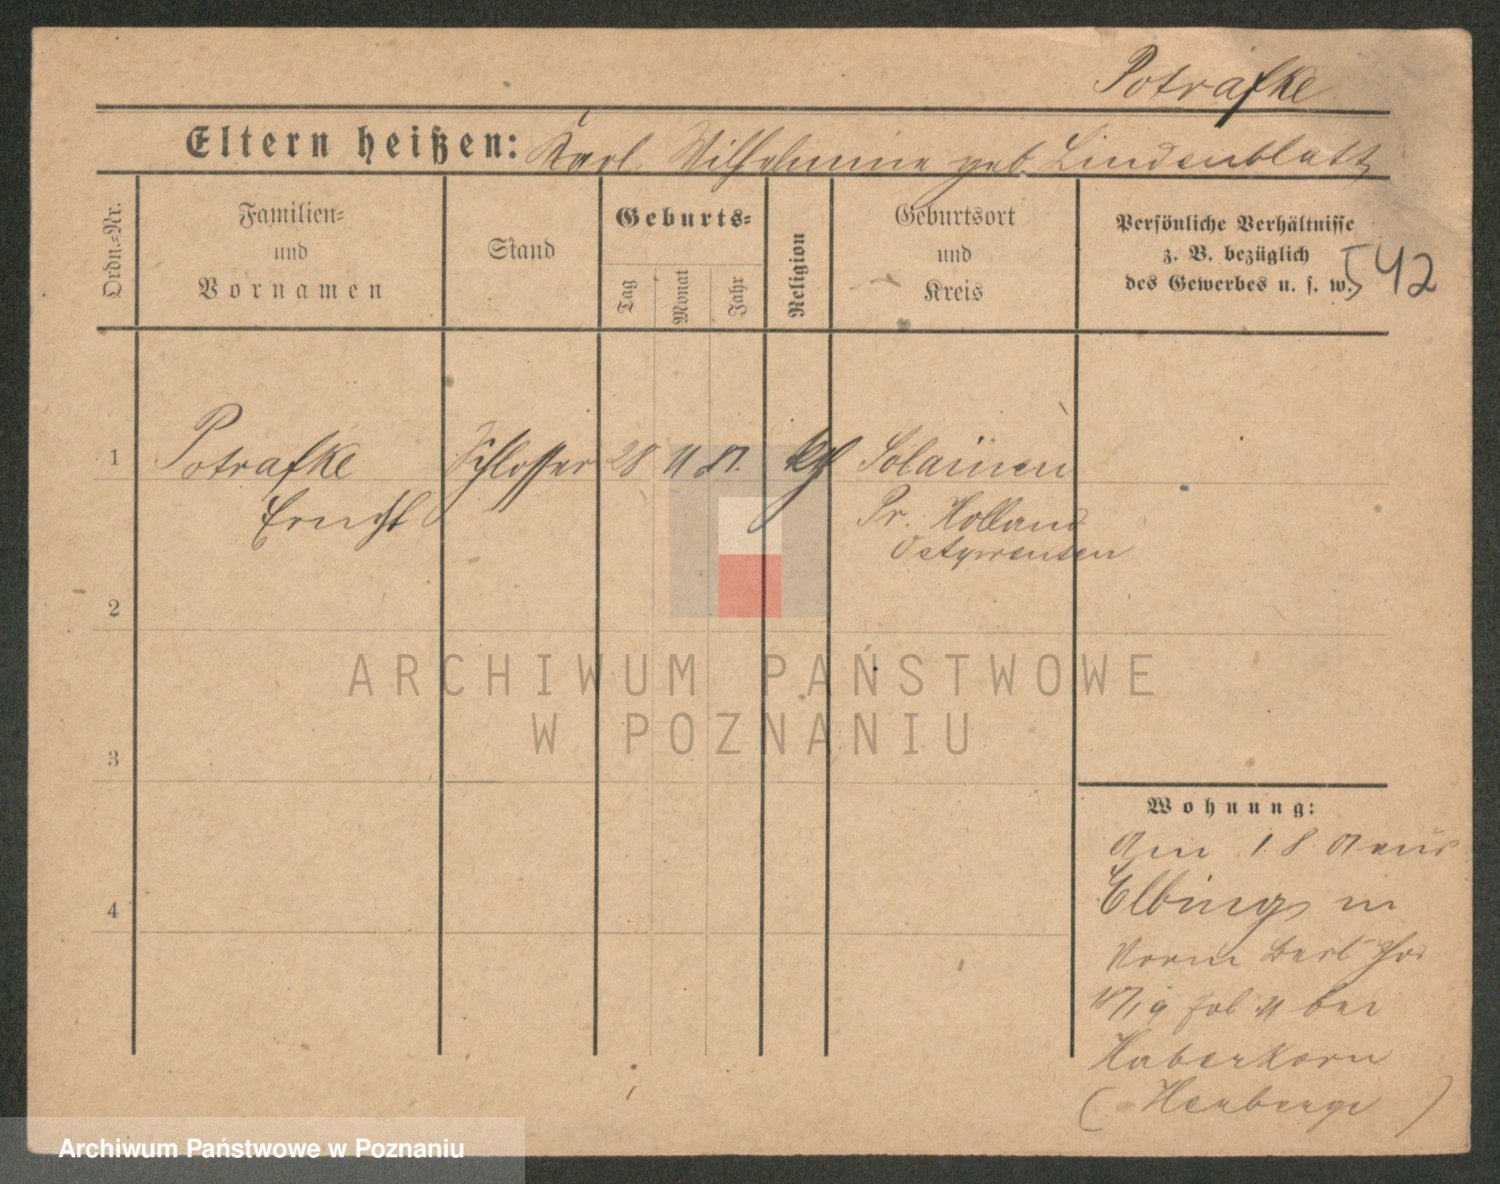 Potrafke
Eltern heißen: Karl Wilhelmine geb. Lindenblatt
Ordn.=Nr.
Familien=
und
Vornamen
Stand
Geburts=
Tag
Monat
Jahr
Religion
Geburtsort
und
Kreis
Persönliche Verhältnisse
z. B. bezüglich
des Gewerbes u. s. w.
542
1 Potrafke Schlosser 28 11 81. Solainen
Ernst Pr. Holland
Ostpreusen
2
3
4
Wohnung:
Am 1. 8. 07 aus
Elbing in
bei
Haberkorn
(Herberge)
ARCHIWUM PAŃSTWOWE
W POZNANIU
Archiwum Państwowe w Poznaniu